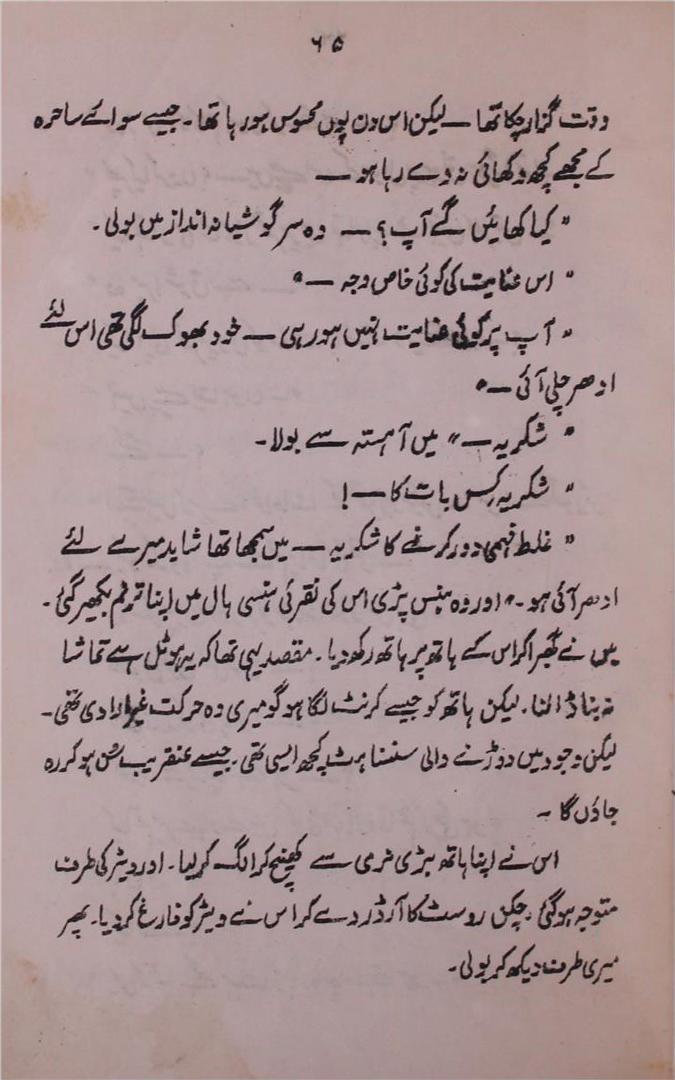 ۶۵
وقت گزار چکا تھا — لیکن اس دن یوں محسوس ہو رہا تھا۔ جیسے سوائے ساحرہ
کے مجھے کچھ دکھائی نہ دے رہا ہو —
"کیا کھائیں گے آپ؟ — وہ سرگوشیانہ انداز میں بولی۔
"اس عنایت کی کوئی خاص وجہ —"
"آپ پر کوئی عنایت نہیں ہو رہی — خود بھوک لگی تھی اس لئے
ادھر چلی آئی —"
"شکریہ —" میں آہستہ سے بولا۔
"شکریہ کس بات کا —!
"غلط فہمی دور کرنے کا شکریہ — میں سمجھا تھا شاید میرے لئے
ادھر آئی ہو۔" اور وہ ہنس پڑی اس کی نقرئی ہنسی ہال میں اپنا ترنم بکھیر گئی۔
میں نے گھبرا کر اس کے ہاتھ پر ہاتھ رکھ دیا۔ مقصد یہی تھا کہ یہ ہوٹل ہے تماشا
نہ بنا ڈالنا۔ لیکن ہاتھ کو جیسے کرنٹ لگا ہو گو میری وہ حرکت غیر ارادی تھی۔
لیکن وجود میں دوڑنے والی سنسناہٹ کچھ ایسی تھی۔ جیسے عنقریب سُن ہو کر رہ
جاؤں گا۔
اس نے اپنا ہاتھ بڑی نرمی سے کھینچ کر الگ کر لیا۔ اور ویٹر کی طرف
متوجہ ہو گئی، چکن روسٹ کا آرڈر دے کر اس نے ویٹر کو فارغ کر دیا۔ پھر
میری طرف دیکھ کر بولی۔